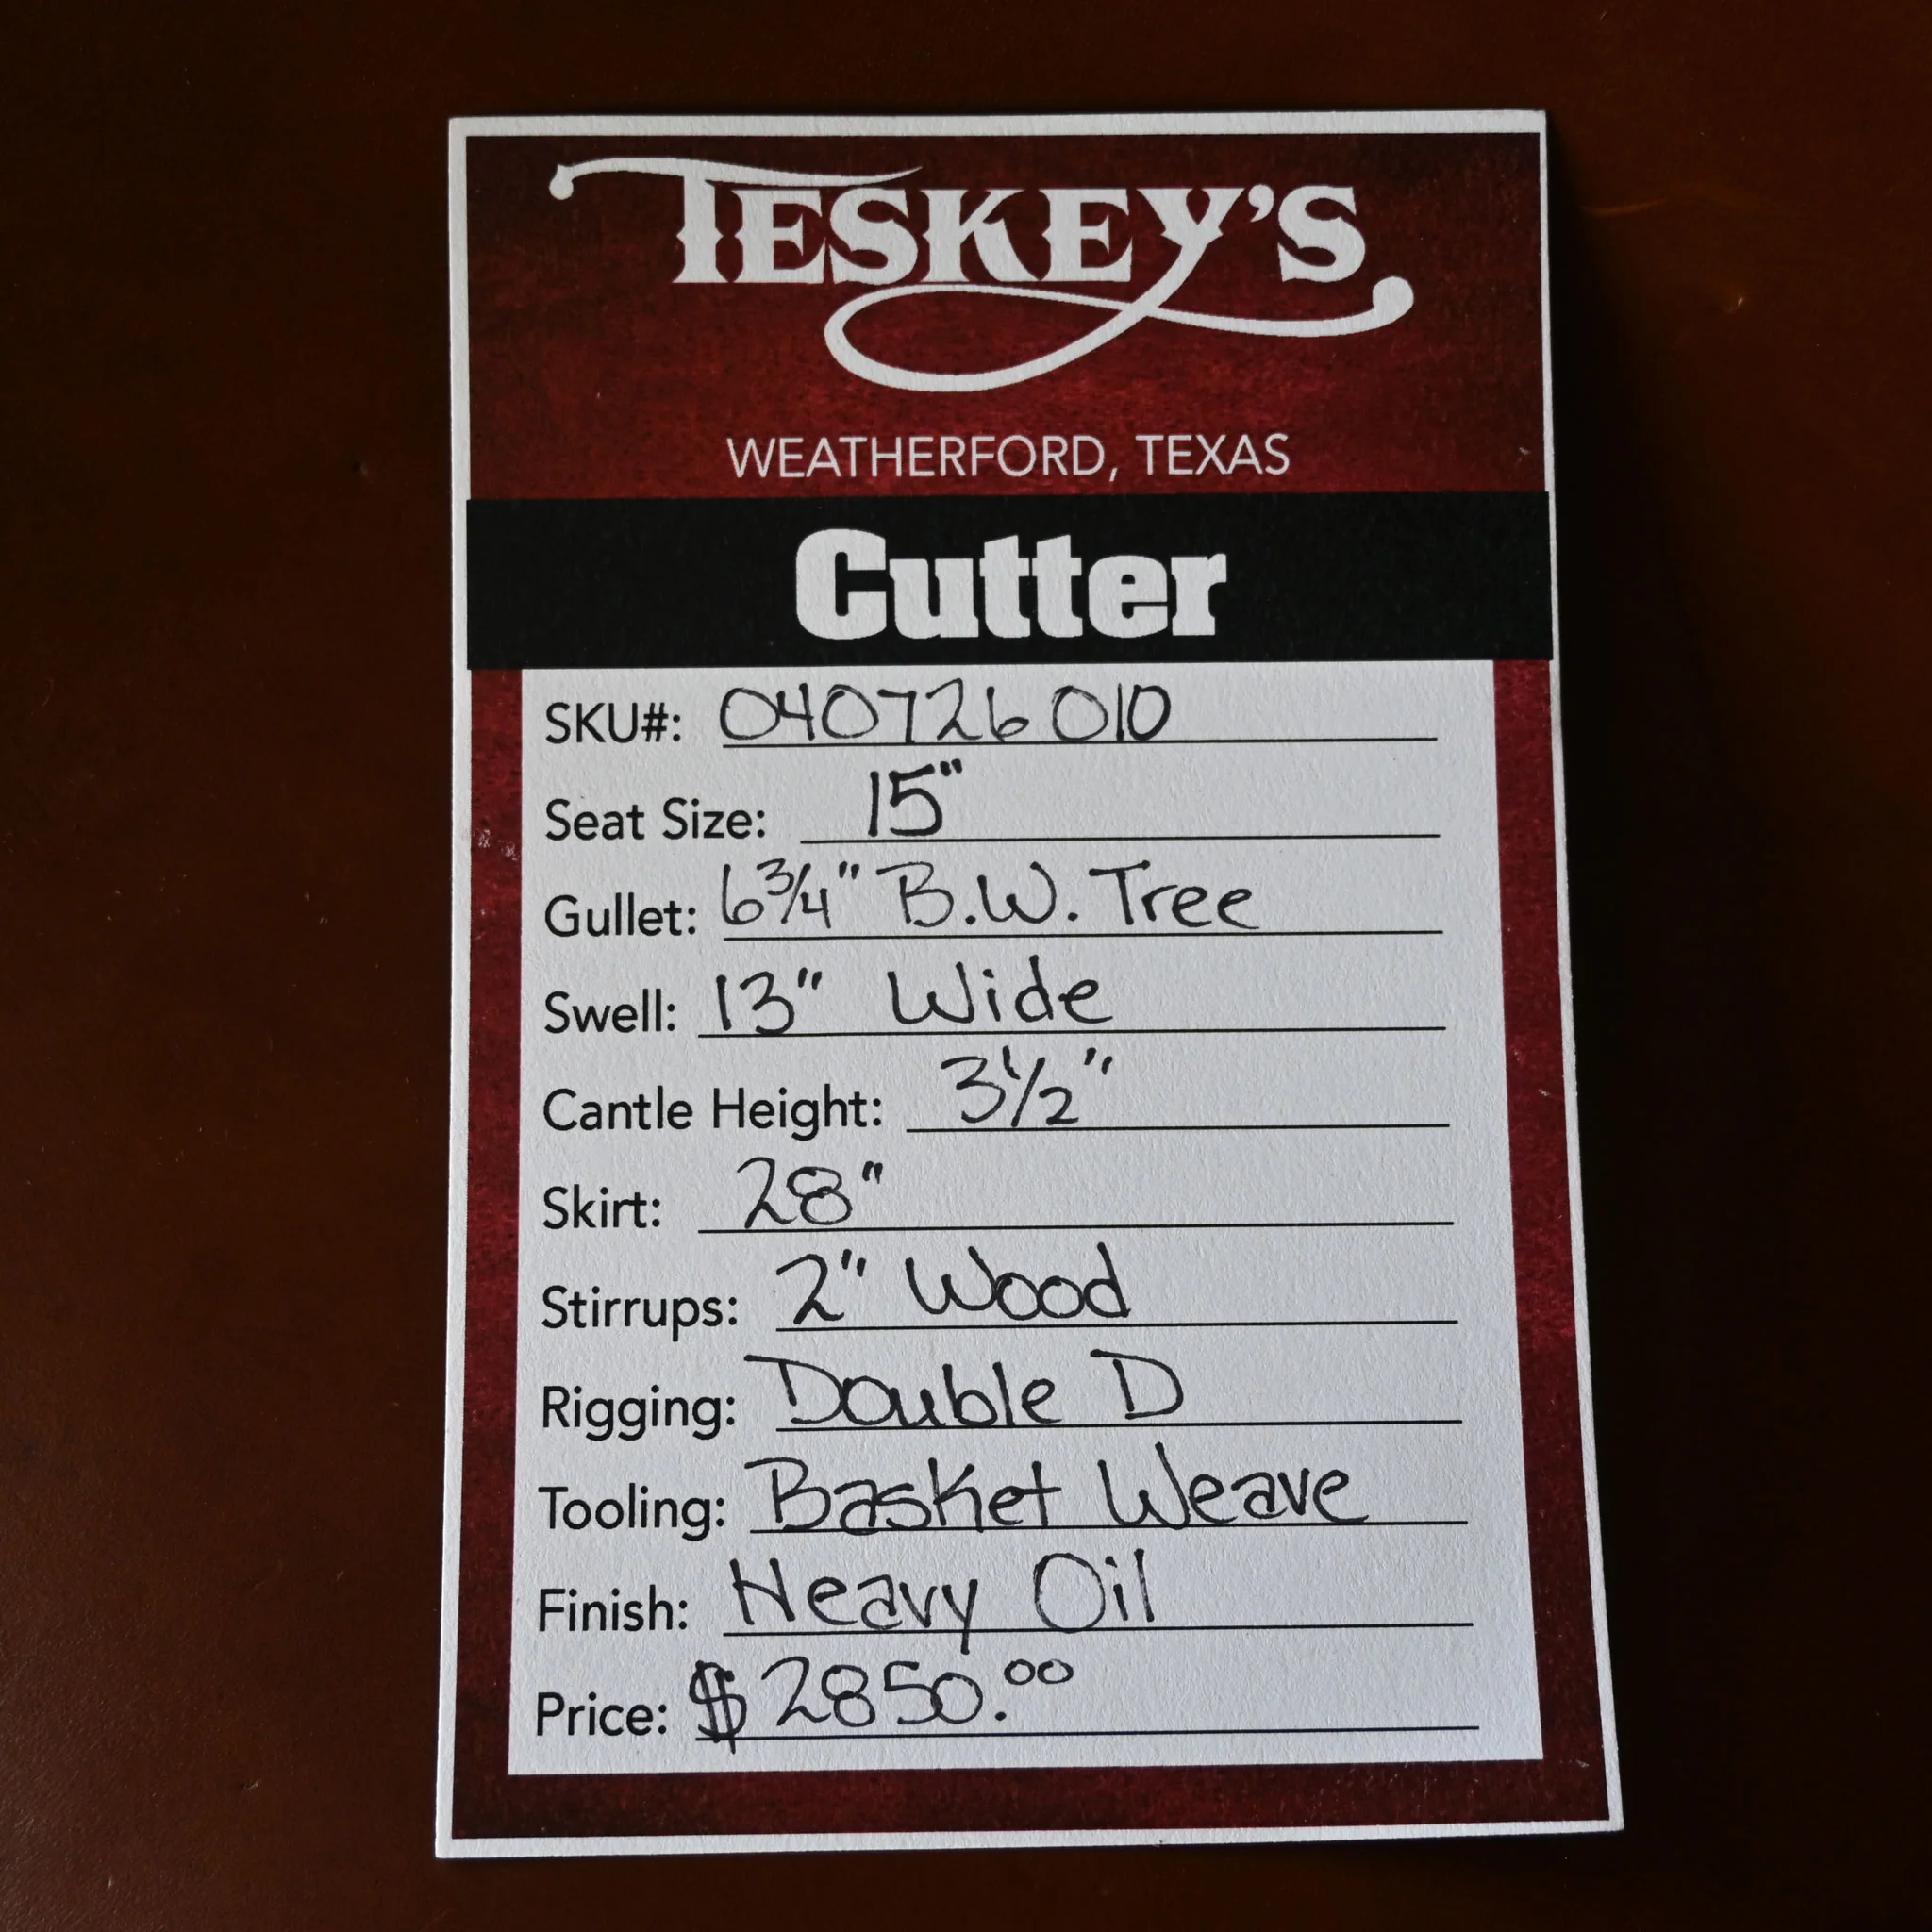 TESKEY'S
WEATHERFORD, TEXAS
Cutter
SKU#: 040726010
Seat Size: 15"
Gullet: 6 3/4" B.W. Tree
Swell: 13" Wide
Cantle Height: 3 1/2"
Skirt: 28"
Stirrups: 2" Wood
Rigging: Double D
Tooling: Basket Weave
Finish: Heavy Oil
Price: $2850.00